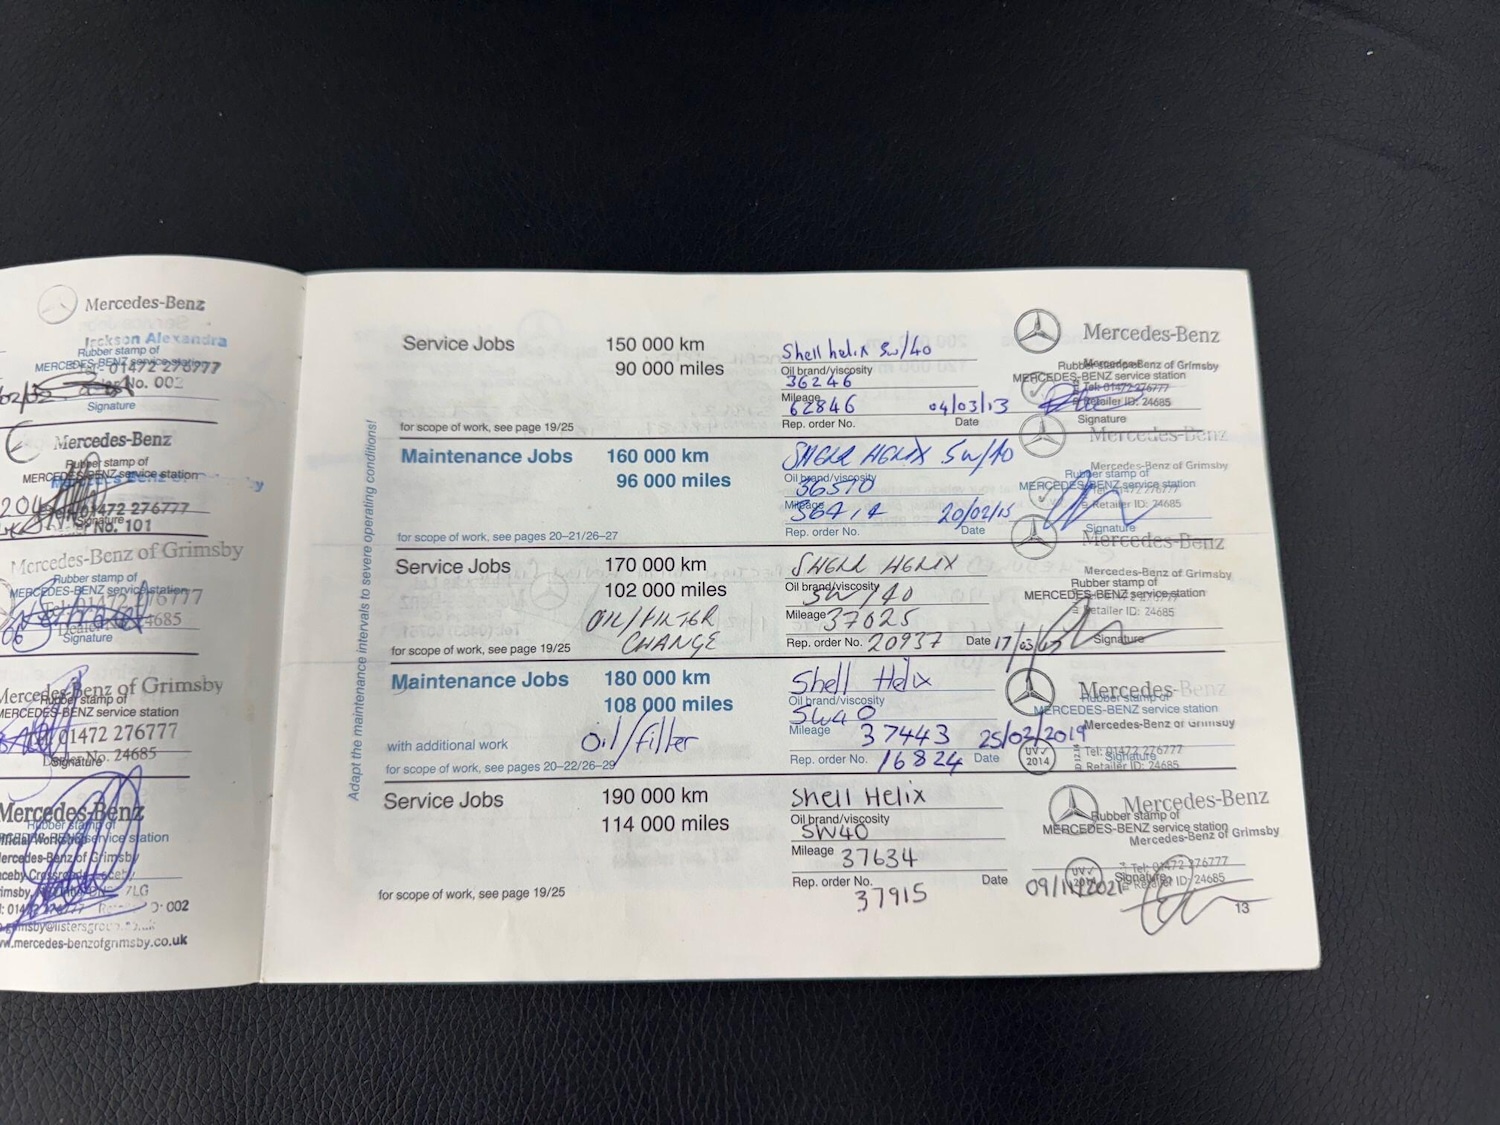 Mercedes-Benz
Jackson Alexandra
Rubber stamp of
MERCEDES-BENZ service station
01472 276777
No. 002
Signature
Mercedes-Benz
Rubber stamp of
MERCEDES-BENZ service station
01472 276777
Signature
No. 101
Mercedes-Benz of Grimsby
Rubber stamp of
MERCEDES-BENZ service station
Tel: 01472 276777
Signature
Mercedes-Benz of Grimsby
Rubber stamp of
MERCEDES-BENZ service station
01472 276777
No. 24685
Signature
Mercedes-Benz
Rubber stamp of
service station
Mercedes-Benz of Grimsby
7LG
002
www.mercedes-benzofgrimsby.co.uk
Adapt the maintenance intervals to severe operating conditions!
Service Jobs 150 000 km
90 000 miles
for scope of work, see page 19/25
Shell helix 5w/40
Oil brand/viscosity
36246
Mileage
62846 04/03/13
Rep. order No. Date
Mercedes-Benz
Rubber stamp of
Mercedes-Benz of Grimsby
MERCEDES-BENZ service station
Tel: 01472 276777
Retailer ID: 24685
Signature
Maintenance Jobs 160 000 km
96 000 miles
for scope of work, see pages 20–21/26–27
SHELL HELIX 5W/40
Oil brand/viscosity
36570
Mileage
20/02/15
Rep. order No. Date
Mercedes-Benz
Mercedes-Benz of Grimsby
Rubber stamp of
MERCEDES-BENZ service station
Tel: 01472 276777
Retailer ID: 24685
Signature
Service Jobs 170 000 km
102 000 miles
OIL/FILTER
CHANGE
for scope of work, see page 19/25
SHELL HELIX
Oil brand/viscosity
5W/40
Mileage 37025
Rep. order No. 20937 Date 17/03/
Mercedes-Benz
Mercedes-Benz of Grimsby
Rubber stamp of
MERCEDES-BENZ service station
Retailer ID: 24685
Signature
Maintenance Jobs 180 000 km
108 000 miles
with additional work Oil/filter
for scope of work, see pages 20–22/26–29
Shell Helix
Oil brand/viscosity
5W40
Mileage 37443 25/03/2019
Rep. order No. 16824 Date
Mercedes-Benz
Rubber stamp of
MERCEDES-BENZ service station
Mercedes-Benz of Grimsby
UV✓
2014
Tel: 01472 276777
Signature
Retailer ID: 24685
Service Jobs 190 000 km
114 000 miles
for scope of work, see page 19/25
Shell Helix
Oil brand/viscosity
5W40
Mileage 37634
Rep. order No. Date
37915 09/11/2021
Mercedes-Benz
Rubber stamp of
MERCEDES-BENZ service station
Mercedes-Benz of Grimsby
UV✓
2014
Tel: 01472 276777
Signature
Retailer ID: 24685
13